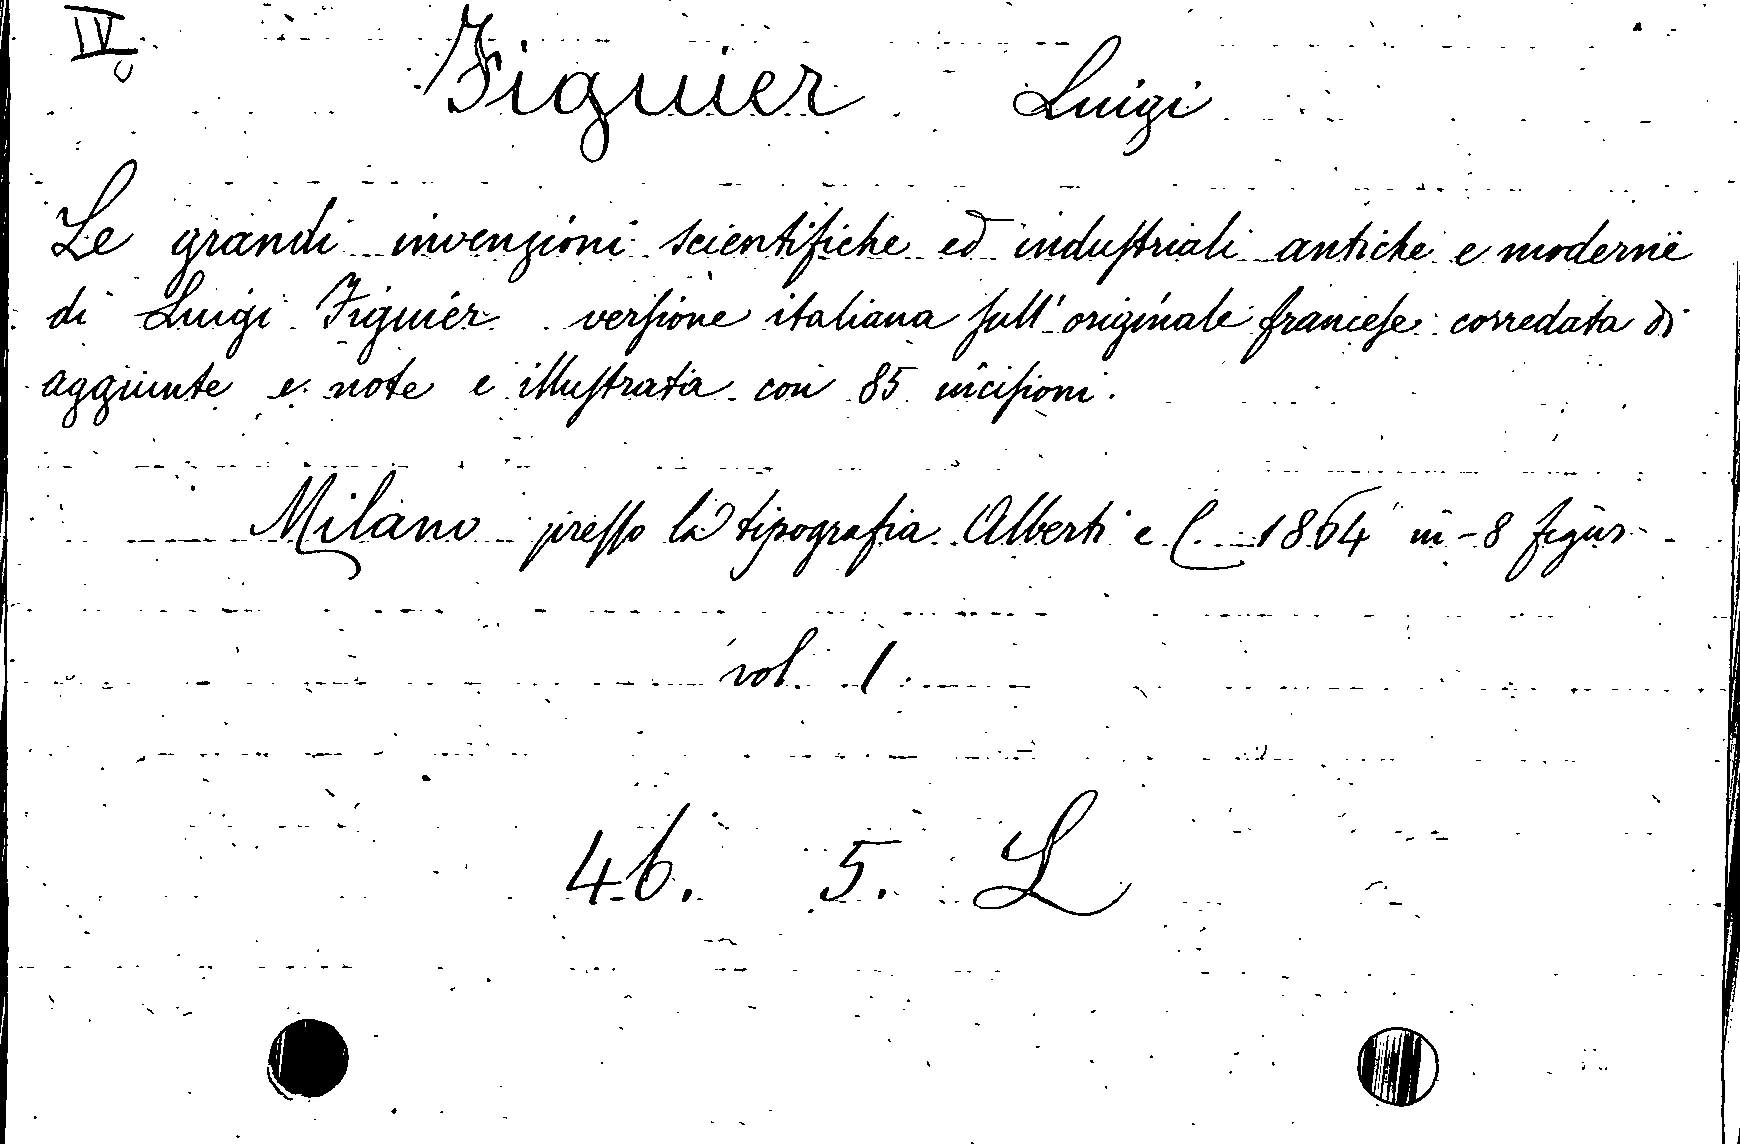 IV
Figuier Luigi
Le grandi invenzioni scientifiche ed industriali antiche e moderne
di Luigi Figuier versione italiana sull'originale francese corredata di
aggiunte e note e illustrata con 85 incisioni.
Milano presso la tipografia Alberti e C. 1864 in-8 figur
vol. 1
46. 5. L